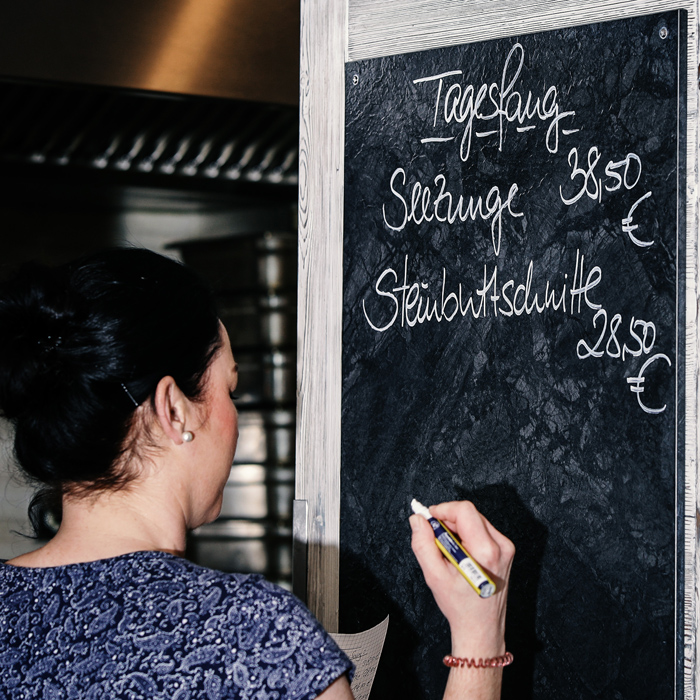 Tagesfang
Seezunge 38,50
€
Steinbuttschnitte
28,50
€